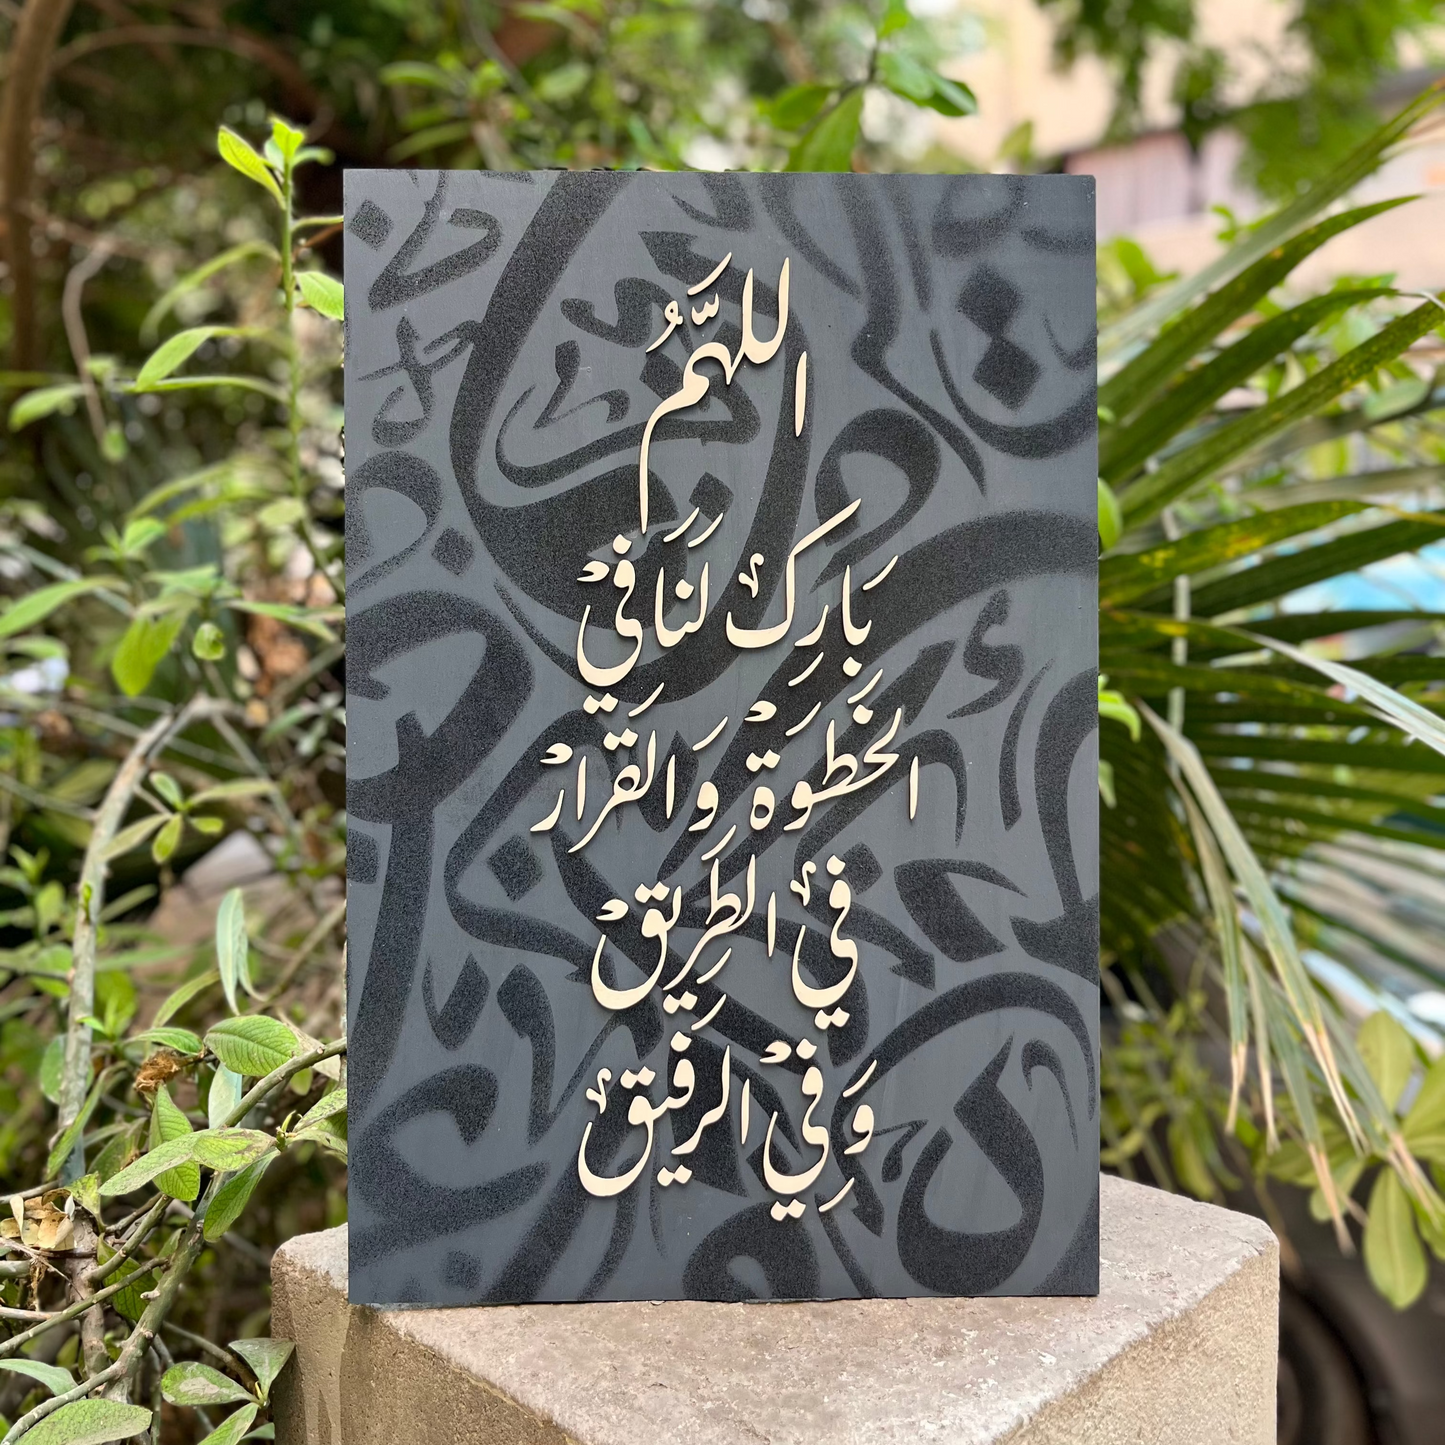 اللهَّمُ
بَارِكْ لنَا فِيْ
الخَطوَةِ وَالقرَارْ
فِيْ الطَرِيقْ
وَفِيْ الرَفيقْ